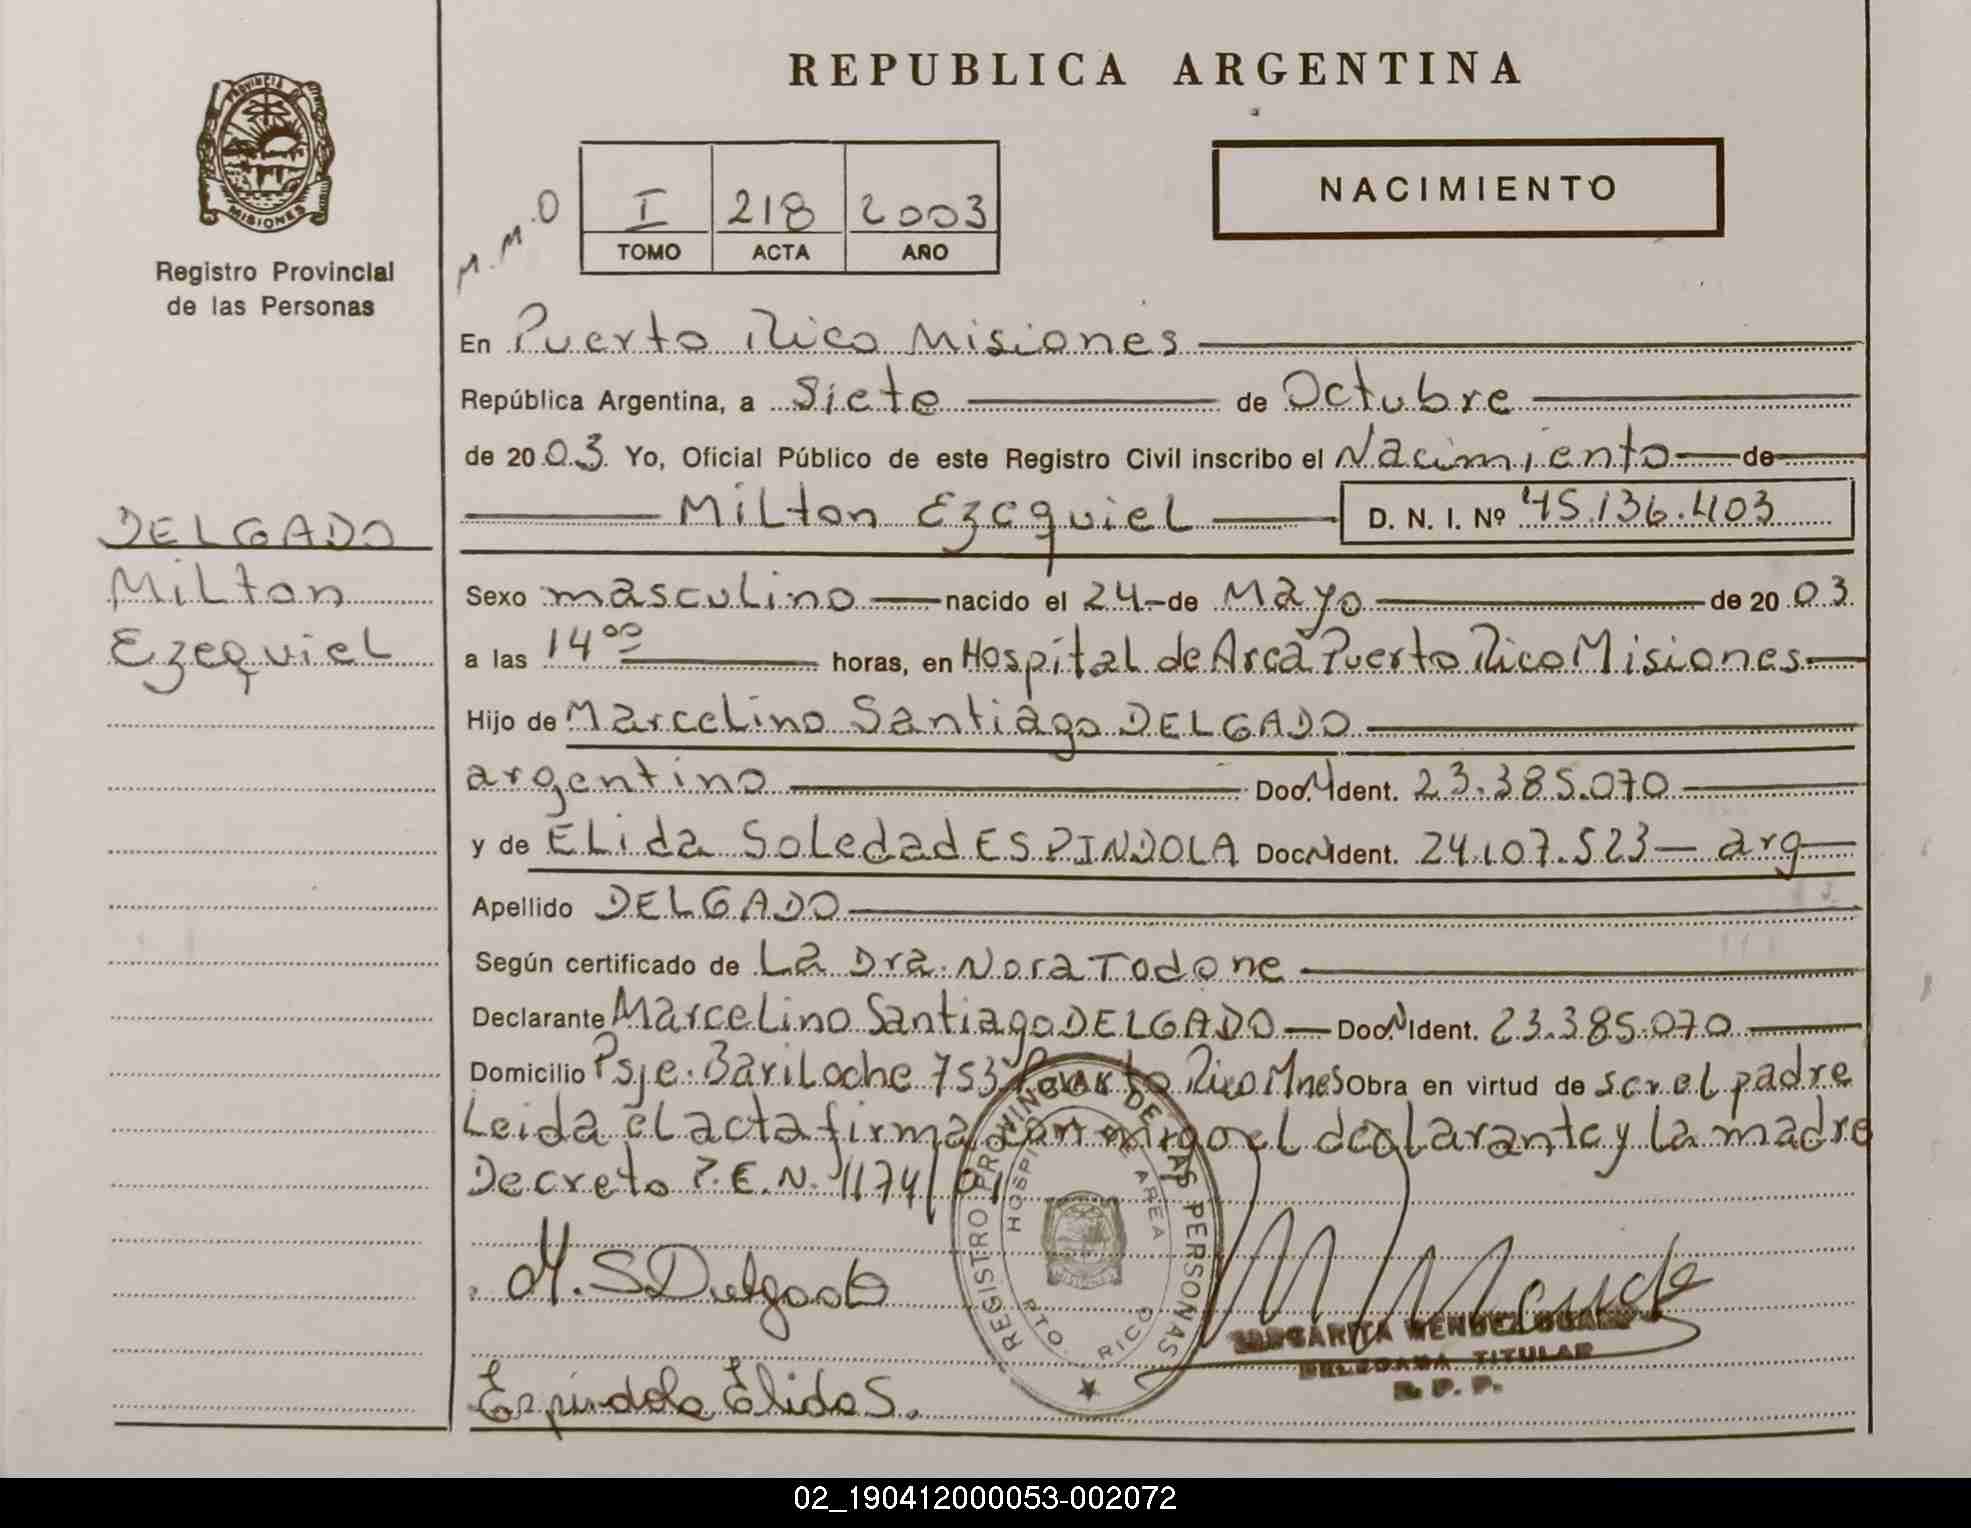 REPUBLICA ARGENTINA
PROVINCIA DE
MISIONES
Registro Provincial
de las Personas
NACIMIENTO
M.M.O
I 218 2003
TOMO ACTA AÑO
En Puerto Rico Misiones
República Argentina, a Siete de Octubre
de 2003 Yo, Oficial Público de este Registro Civil inscribo el Nacimiento de
Milton Ezequiel D. N. I. Nº 45.136.403
DELGADO
Milton
Ezequiel
Sexo masculino nacido el 24 de Mayo de 2003
a las 14 00 horas, en Hospital de Area Puerto Rico Misiones
Hijo de Marcelino Santiago DELGADO
argentino Doc. N Ident. 23.385.070
y de Elida Soledad ESPINDOLA Doc. N Ident. 24.107.523 - arg
Apellido DELGADO
Según certificado de La Dra. Nora Todone
Declarante Marcelino Santiago DELGADO Doc. N Ident. 23.385.070
Domicilio Psje. Bariloche 753 Puerto Rico Mnes Obra en virtud de ser el padre
Leida el acta firma con migo el declarante y la madre
Decreto P.E.N. 1174/01
REGISTRO PROVINCIAL DE LAS PERSONAS
HOSPITAL DE AREA
PTO. RICO
MISIONES
M. S Delgado
M Mende
MARGARITA MENDEZ
DELEGADA TITULAR
R. P. P.
Espindola Elida S.
02_190412000053-002072